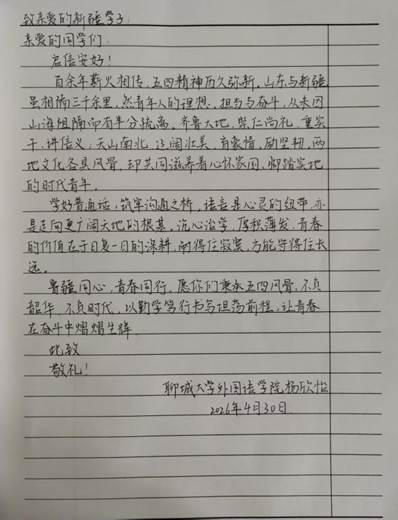 致亲爱的新疆学子
亲爱的同学们:
启信安好!
百余年薪火相传,五四精神历久弥新。山东与新疆
虽相隔三千余里,然青年人的理想、担当与奋斗,从未因
山海阻隔而有半分疏离。齐鲁大地,崇仁尚礼,重实
干,讲信义;天山南北,辽阔壮美,育豪情,励坚韧。两
地文化各具风骨,却共同滋养着心怀家国、脚踏实地
的时代青年。
学好普通话,筑牢沟通之桥,语言是心灵的纽带,亦
是走向更广阔天地的根基。沉心治学,厚积薄发,青春
的价值在于日复一日的深耕,耐得住寂寞,方能守得住长
远。
鲁疆同心,青春同行。愿你们秉承五四风骨,不负
韶华,不负时代,以勤学笃行书写坦荡前程,让青春
在奋斗中熠熠生辉。
此致
敬礼!
聊城大学外国语学院杨欣怡
2026年4月30日